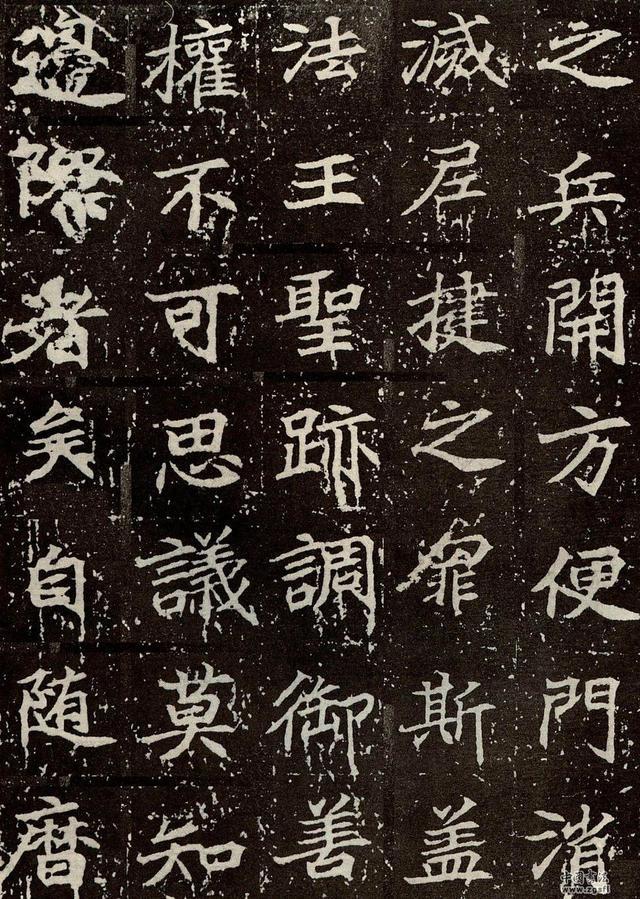 之兵開方便門消
滅居揵之罪斯盖
法王聖跡調御善
權不可思議莫知
邊際者矣自随暦
中国书法
www.zgsf